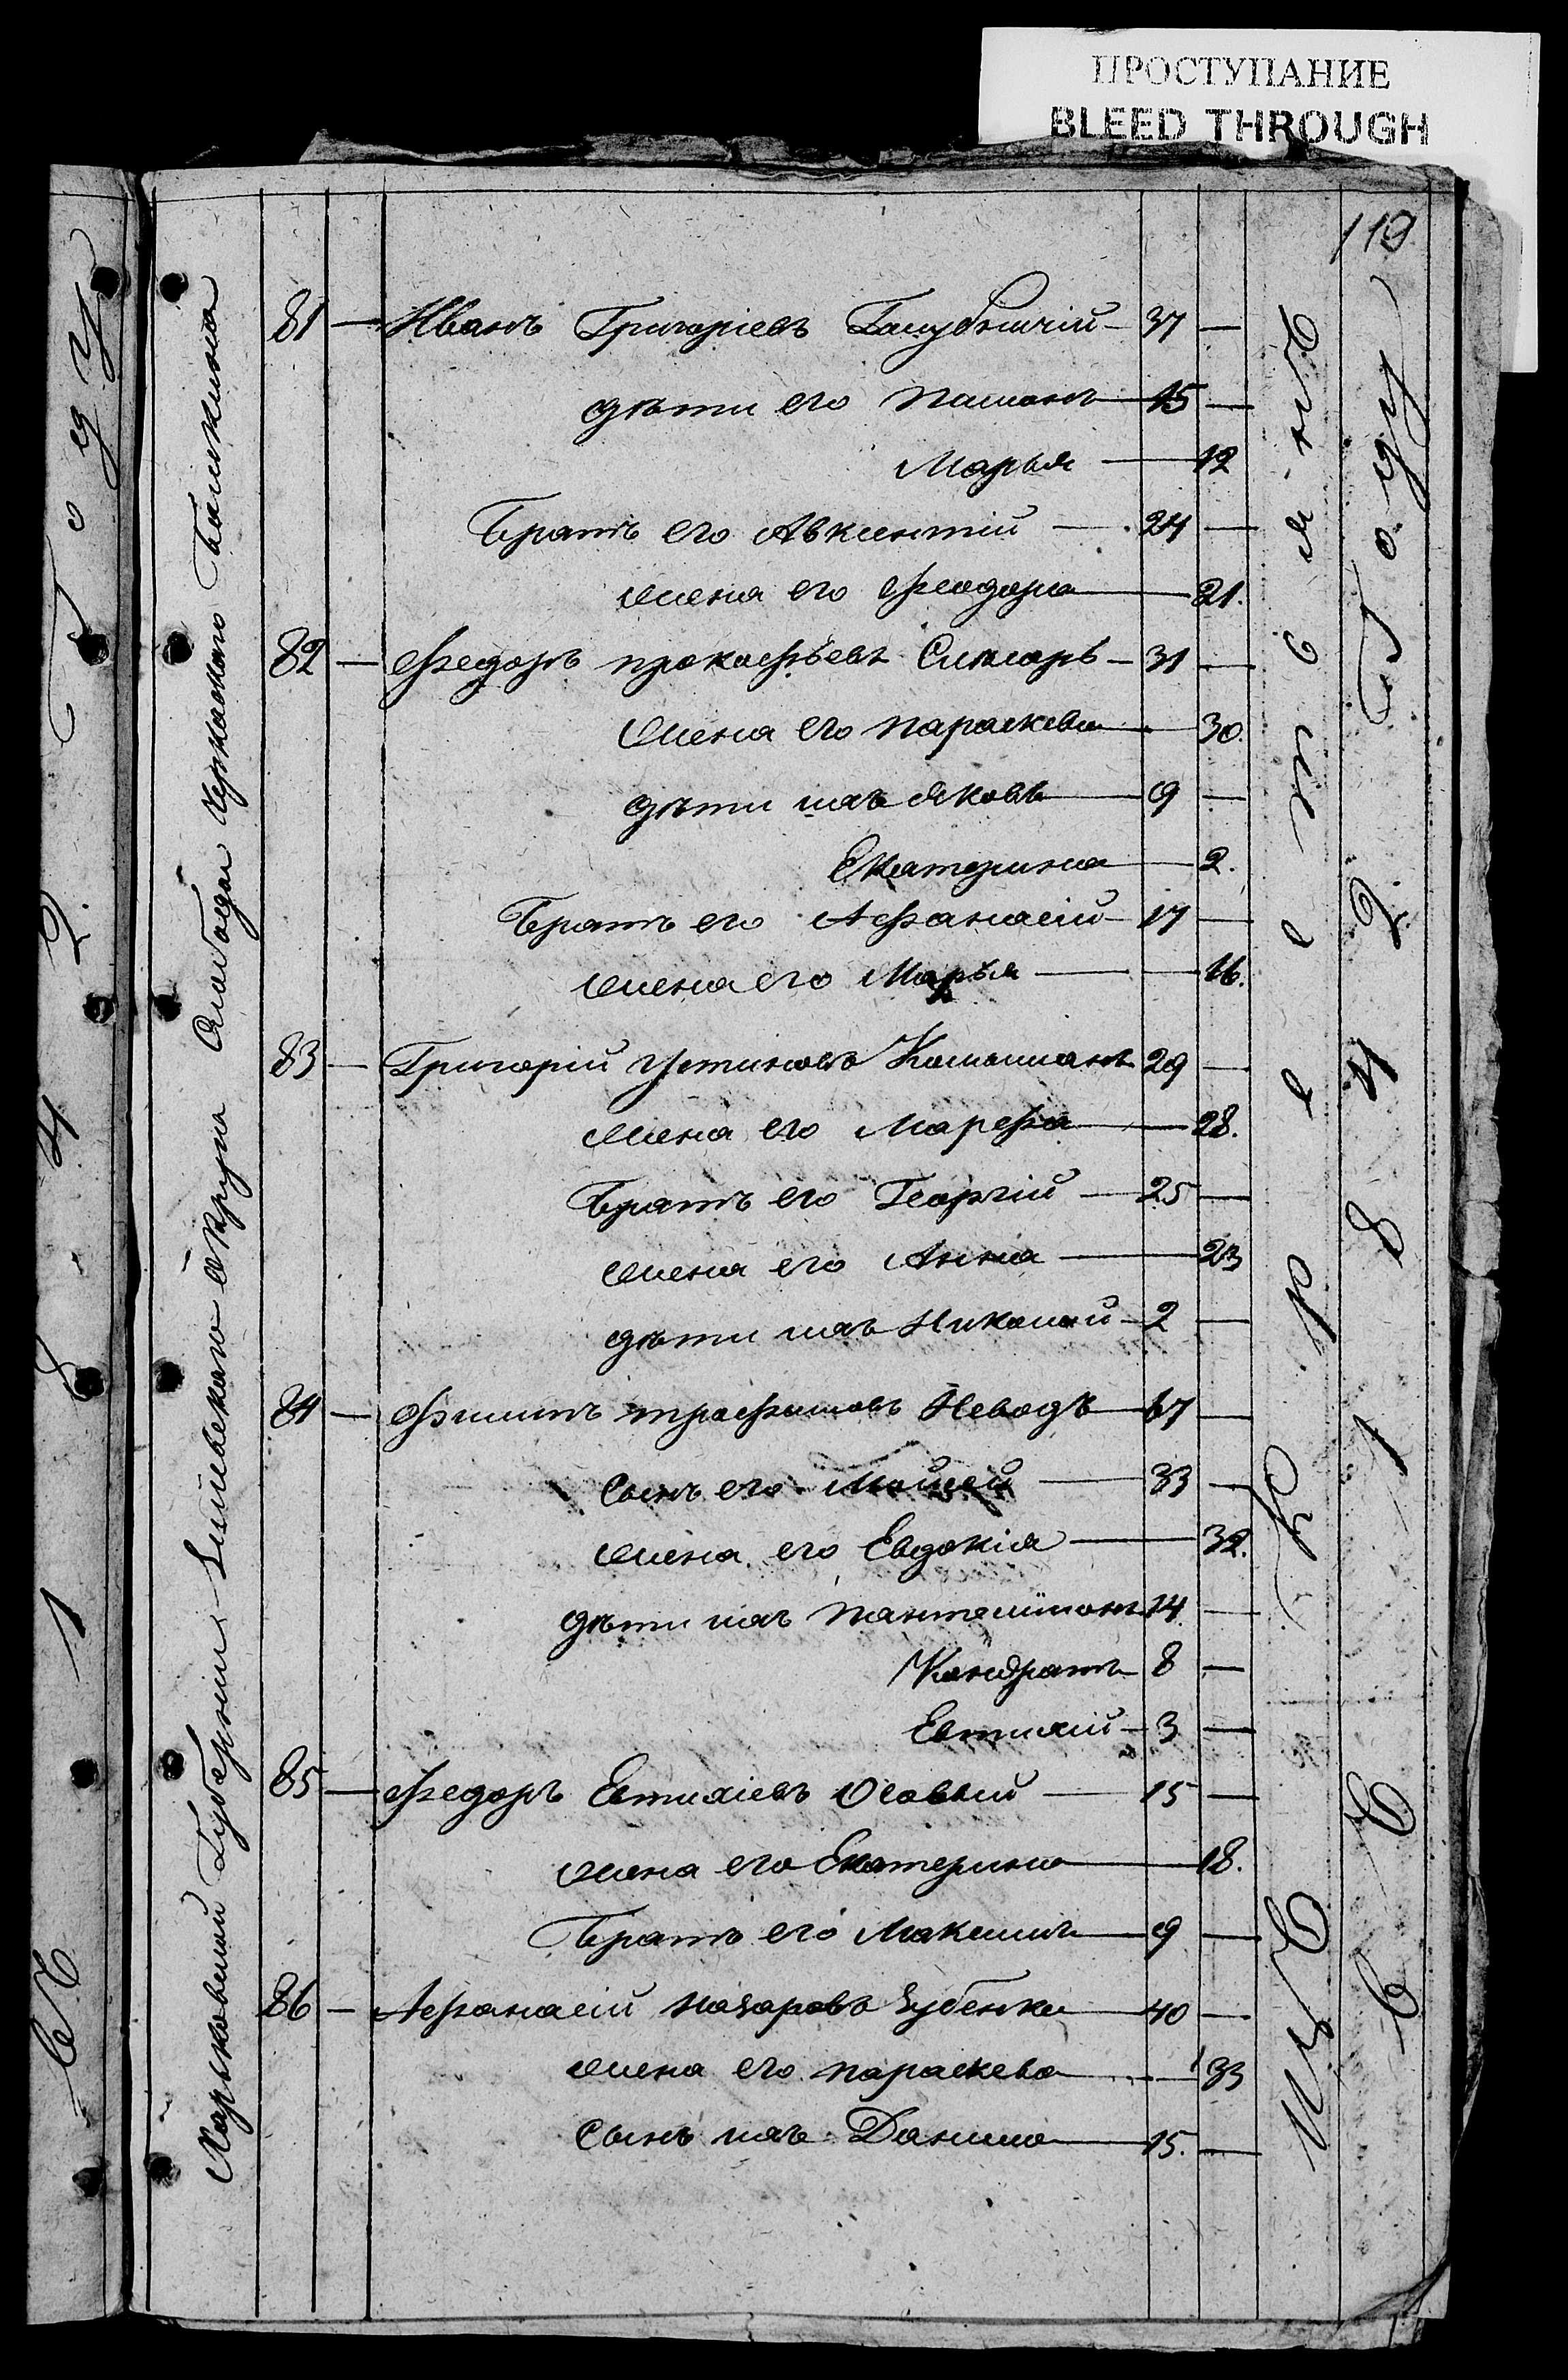 ПРОСТУПАНИЕ
BLEED THROUGH
119
Харьковской Губернии Зміевскаго округа Слободы Черкаского Бишкина
81 — Иванъ Григоріевъ Голубничій — 37 —
дѣти его Платонъ — 15 —
Марья — 12
Братъ его Авксентій — 24 —
жена его Феодора — 21.
82 — Федоръ Прокофьевъ Слюсарь — 31 —
жена его Параскева — 30.
дѣти ихъ Яковъ — 9 —
Екатерина — 2.
Братъ его Афанасій — 17 —
жена его Марья — 16.
83 — Григорій Устиновъ 29 —
жена его Марфа — 28.
Братъ его Георгій — 25 —
жена его Анна — 23
дѣти ихъ Николай — 2 —
84 — Филипъ Трофимовъ Неводъ — 67 —
Сынъ его Мойсей — 33 —
жена его Евдокія — 32.
дѣти ихъ Пантелiимонъ 14 —
Кондратъ — 8 —
Евтихій — 3 —
85 — Федоръ Евтихіевъ Осовый — 15 —
жена его Екатерина — 18.
Братъ его Максимъ — 9 —
86 — Афанасій Назаровъ Зубенко — 40 —
жена его Параскева — 33
Сынъ ихъ Данило — 15. —
Въ 1842 Году